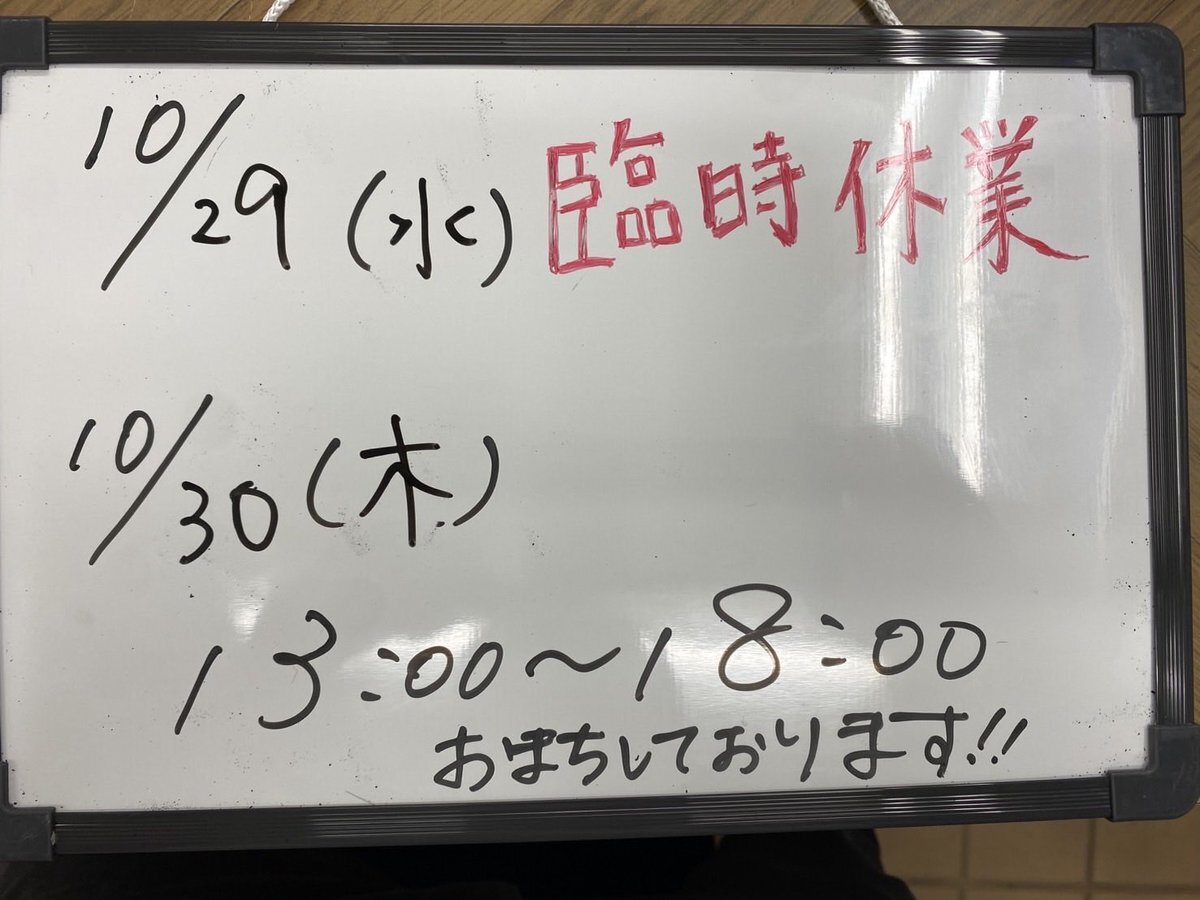 10/29 (水) 臨時休業
10/30 (木)
13:00〜18:00
おまちしております!!